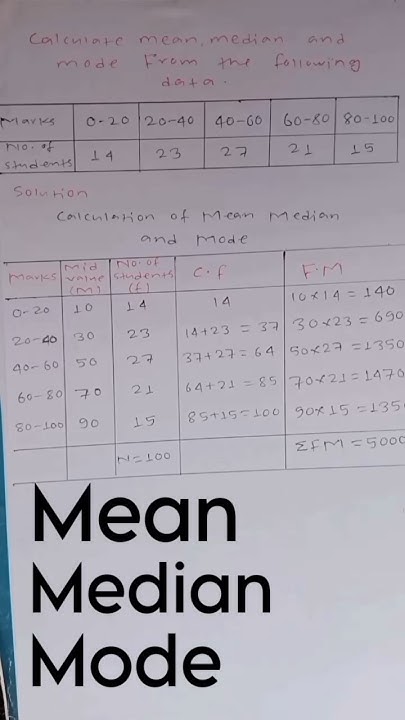 Calculate mean, median and
mode From the following
data.
Marks 0-20 20-40 40-60 60-80 80-100
No. of students 14 23 27 21 15
Solution
Calculation of Mean Median
and Mode
Marks Mid value (M) No. of students (f) C.f F.M
0-20 10 14 14 10×14 = 140
20-40 30 23 14+23 = 37 30×23 = 690
40-60 50 27 37+27 = 64 50×27 = 1350
60-80 70 21 64+21 = 85 70×21 = 1470
80-100 90 15 85+15 = 100 90×15 = 135
N=100 ΣFM = 5000
Mean
Median
Mode